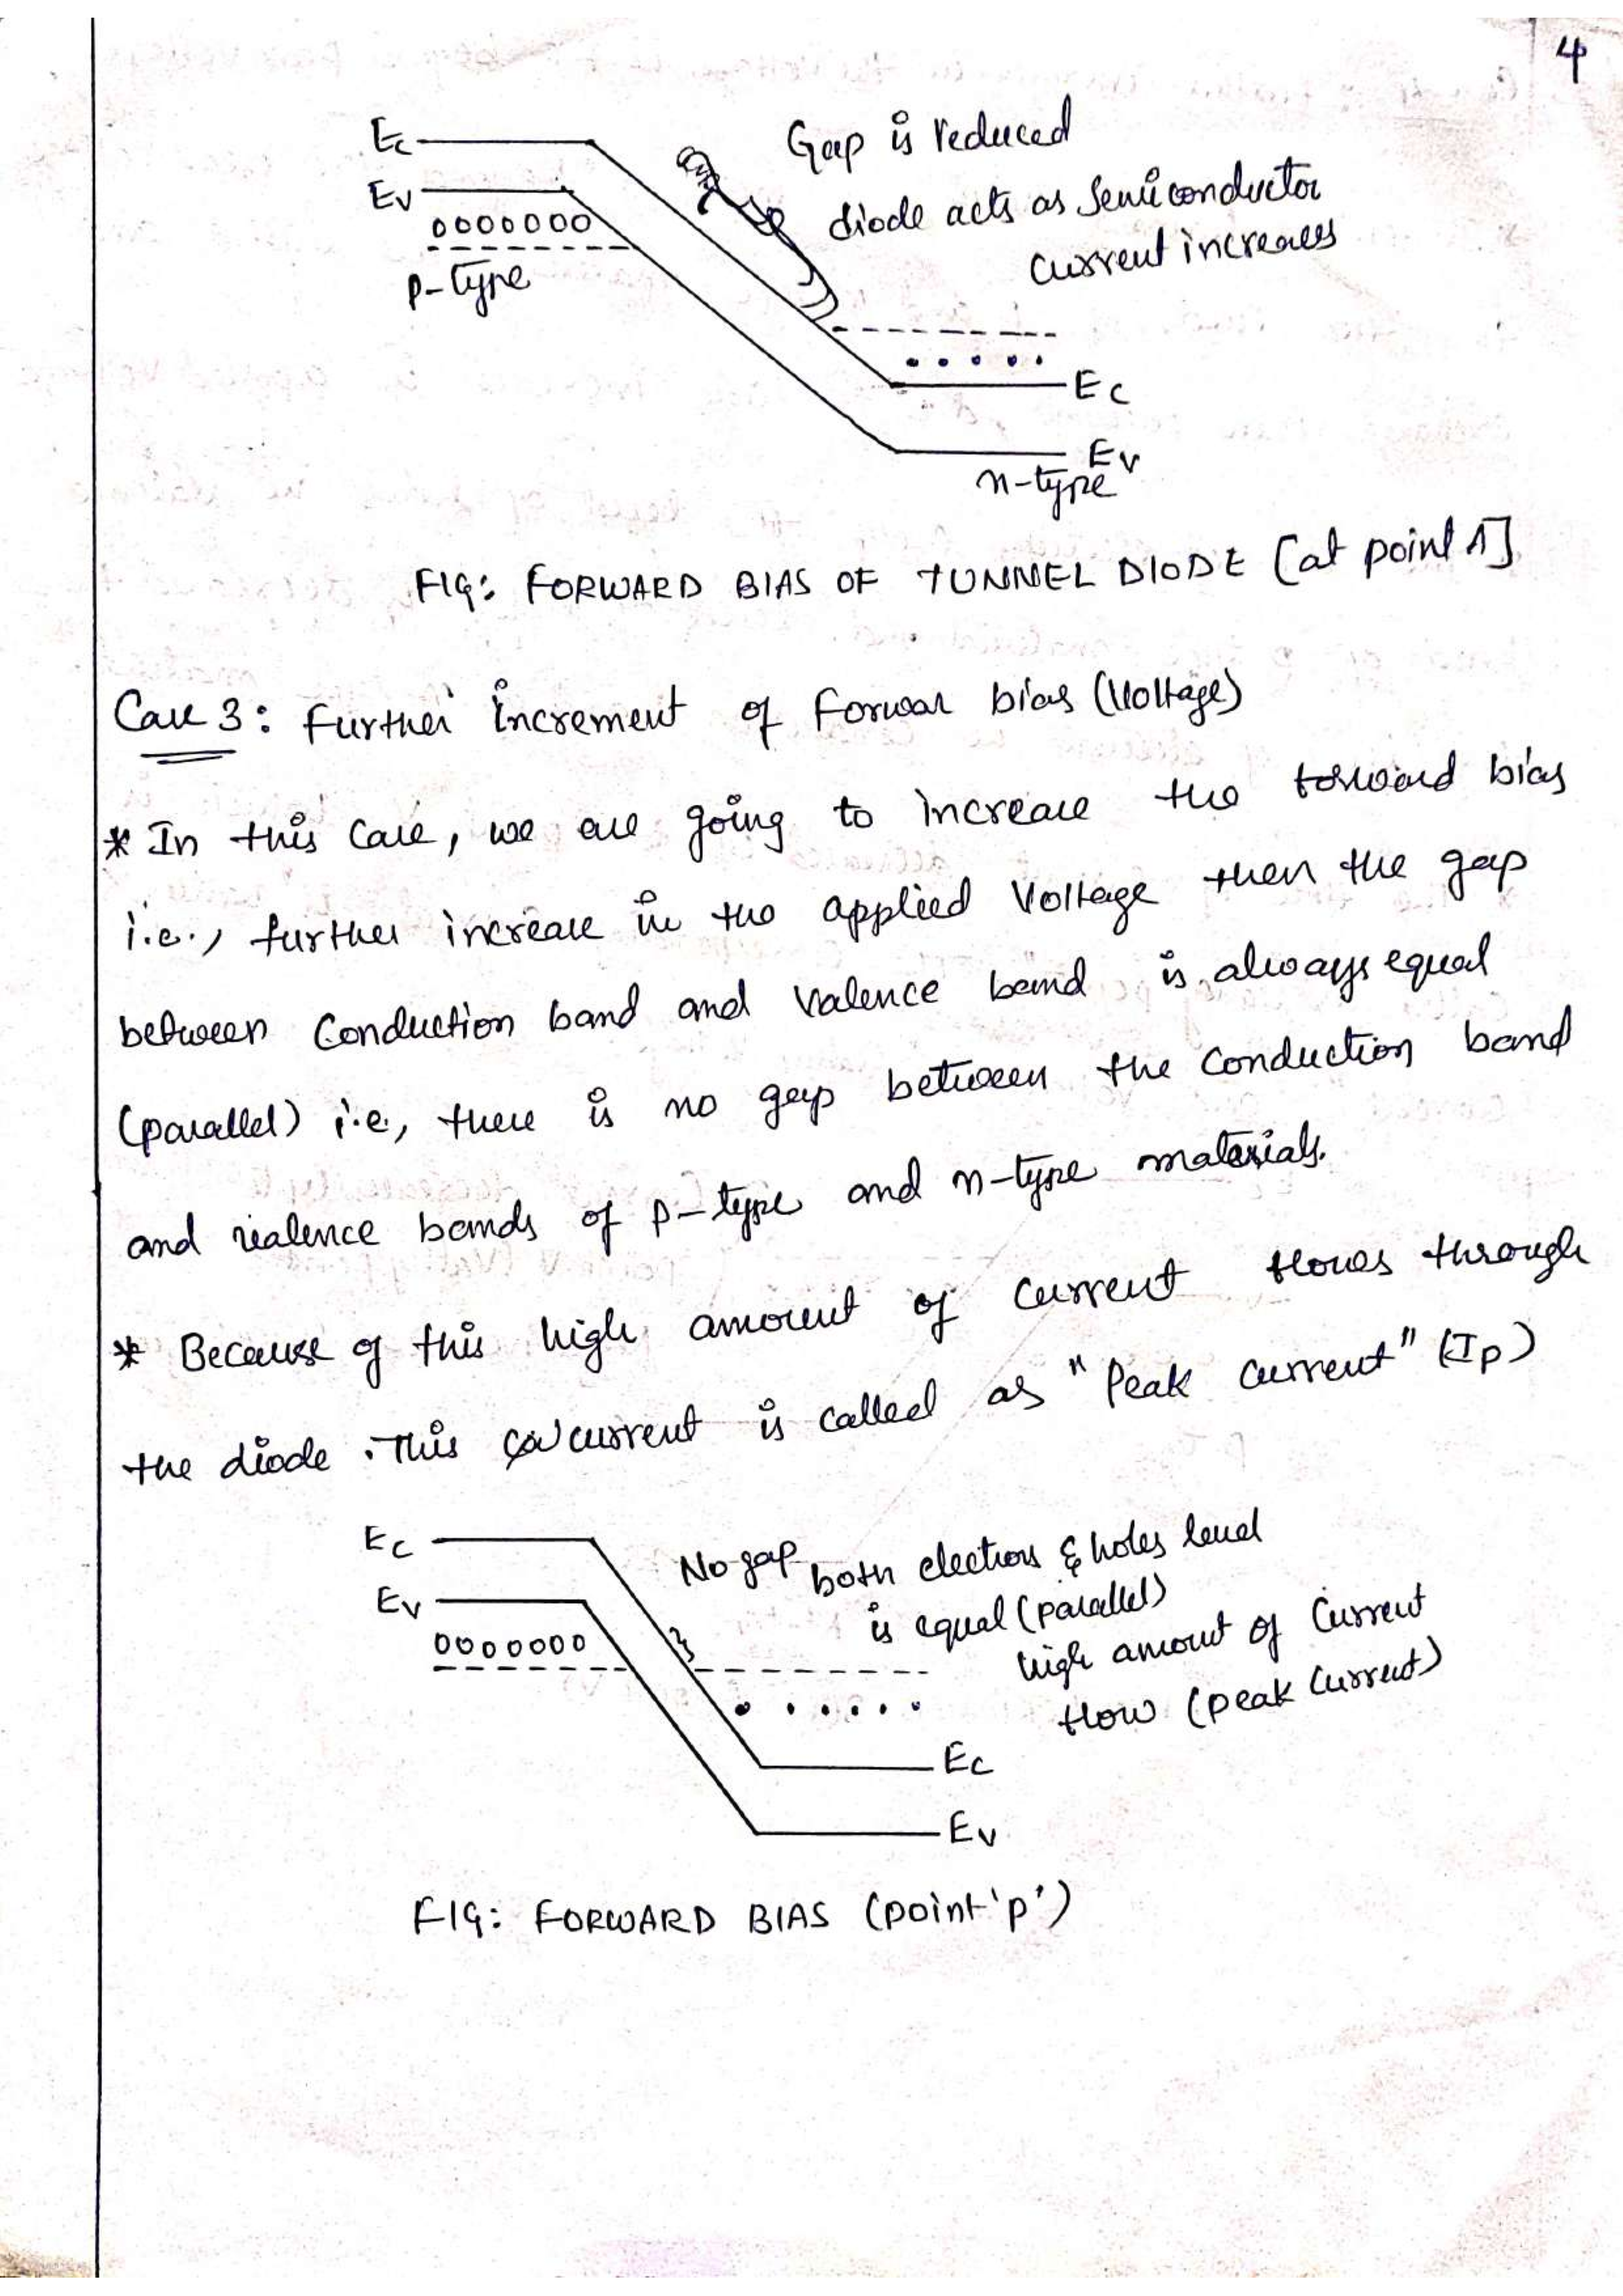 4
Ec
Ev
0000000
p-type
Gap is reduced
diode acts as Semiconductor
current increases
Ec
Ev
n-type
FIG: FORWARD BIAS OF TUNNEL DIODE [at point 1]
Case 3: Further increment of Forwar bias (Voltage)
* In this case, we are going to increase the forward bias
i.e., further increase in the applied voltage then the gap
between conduction band and valence band is always equal
(parallel) i.e, there is no gap between the conduction band
and valence bands of p-type and n-type materials.
* Because of this high amount of current flows through
the diode. This current is called as "Peak current" (Ip)
Ec
Ev
0000000
No gap both electrons & holes level
is equal (parallel)
high amout of current
flow (peak current)
Ec
Ev
FIG: FORWARD BIAS (point 'p')